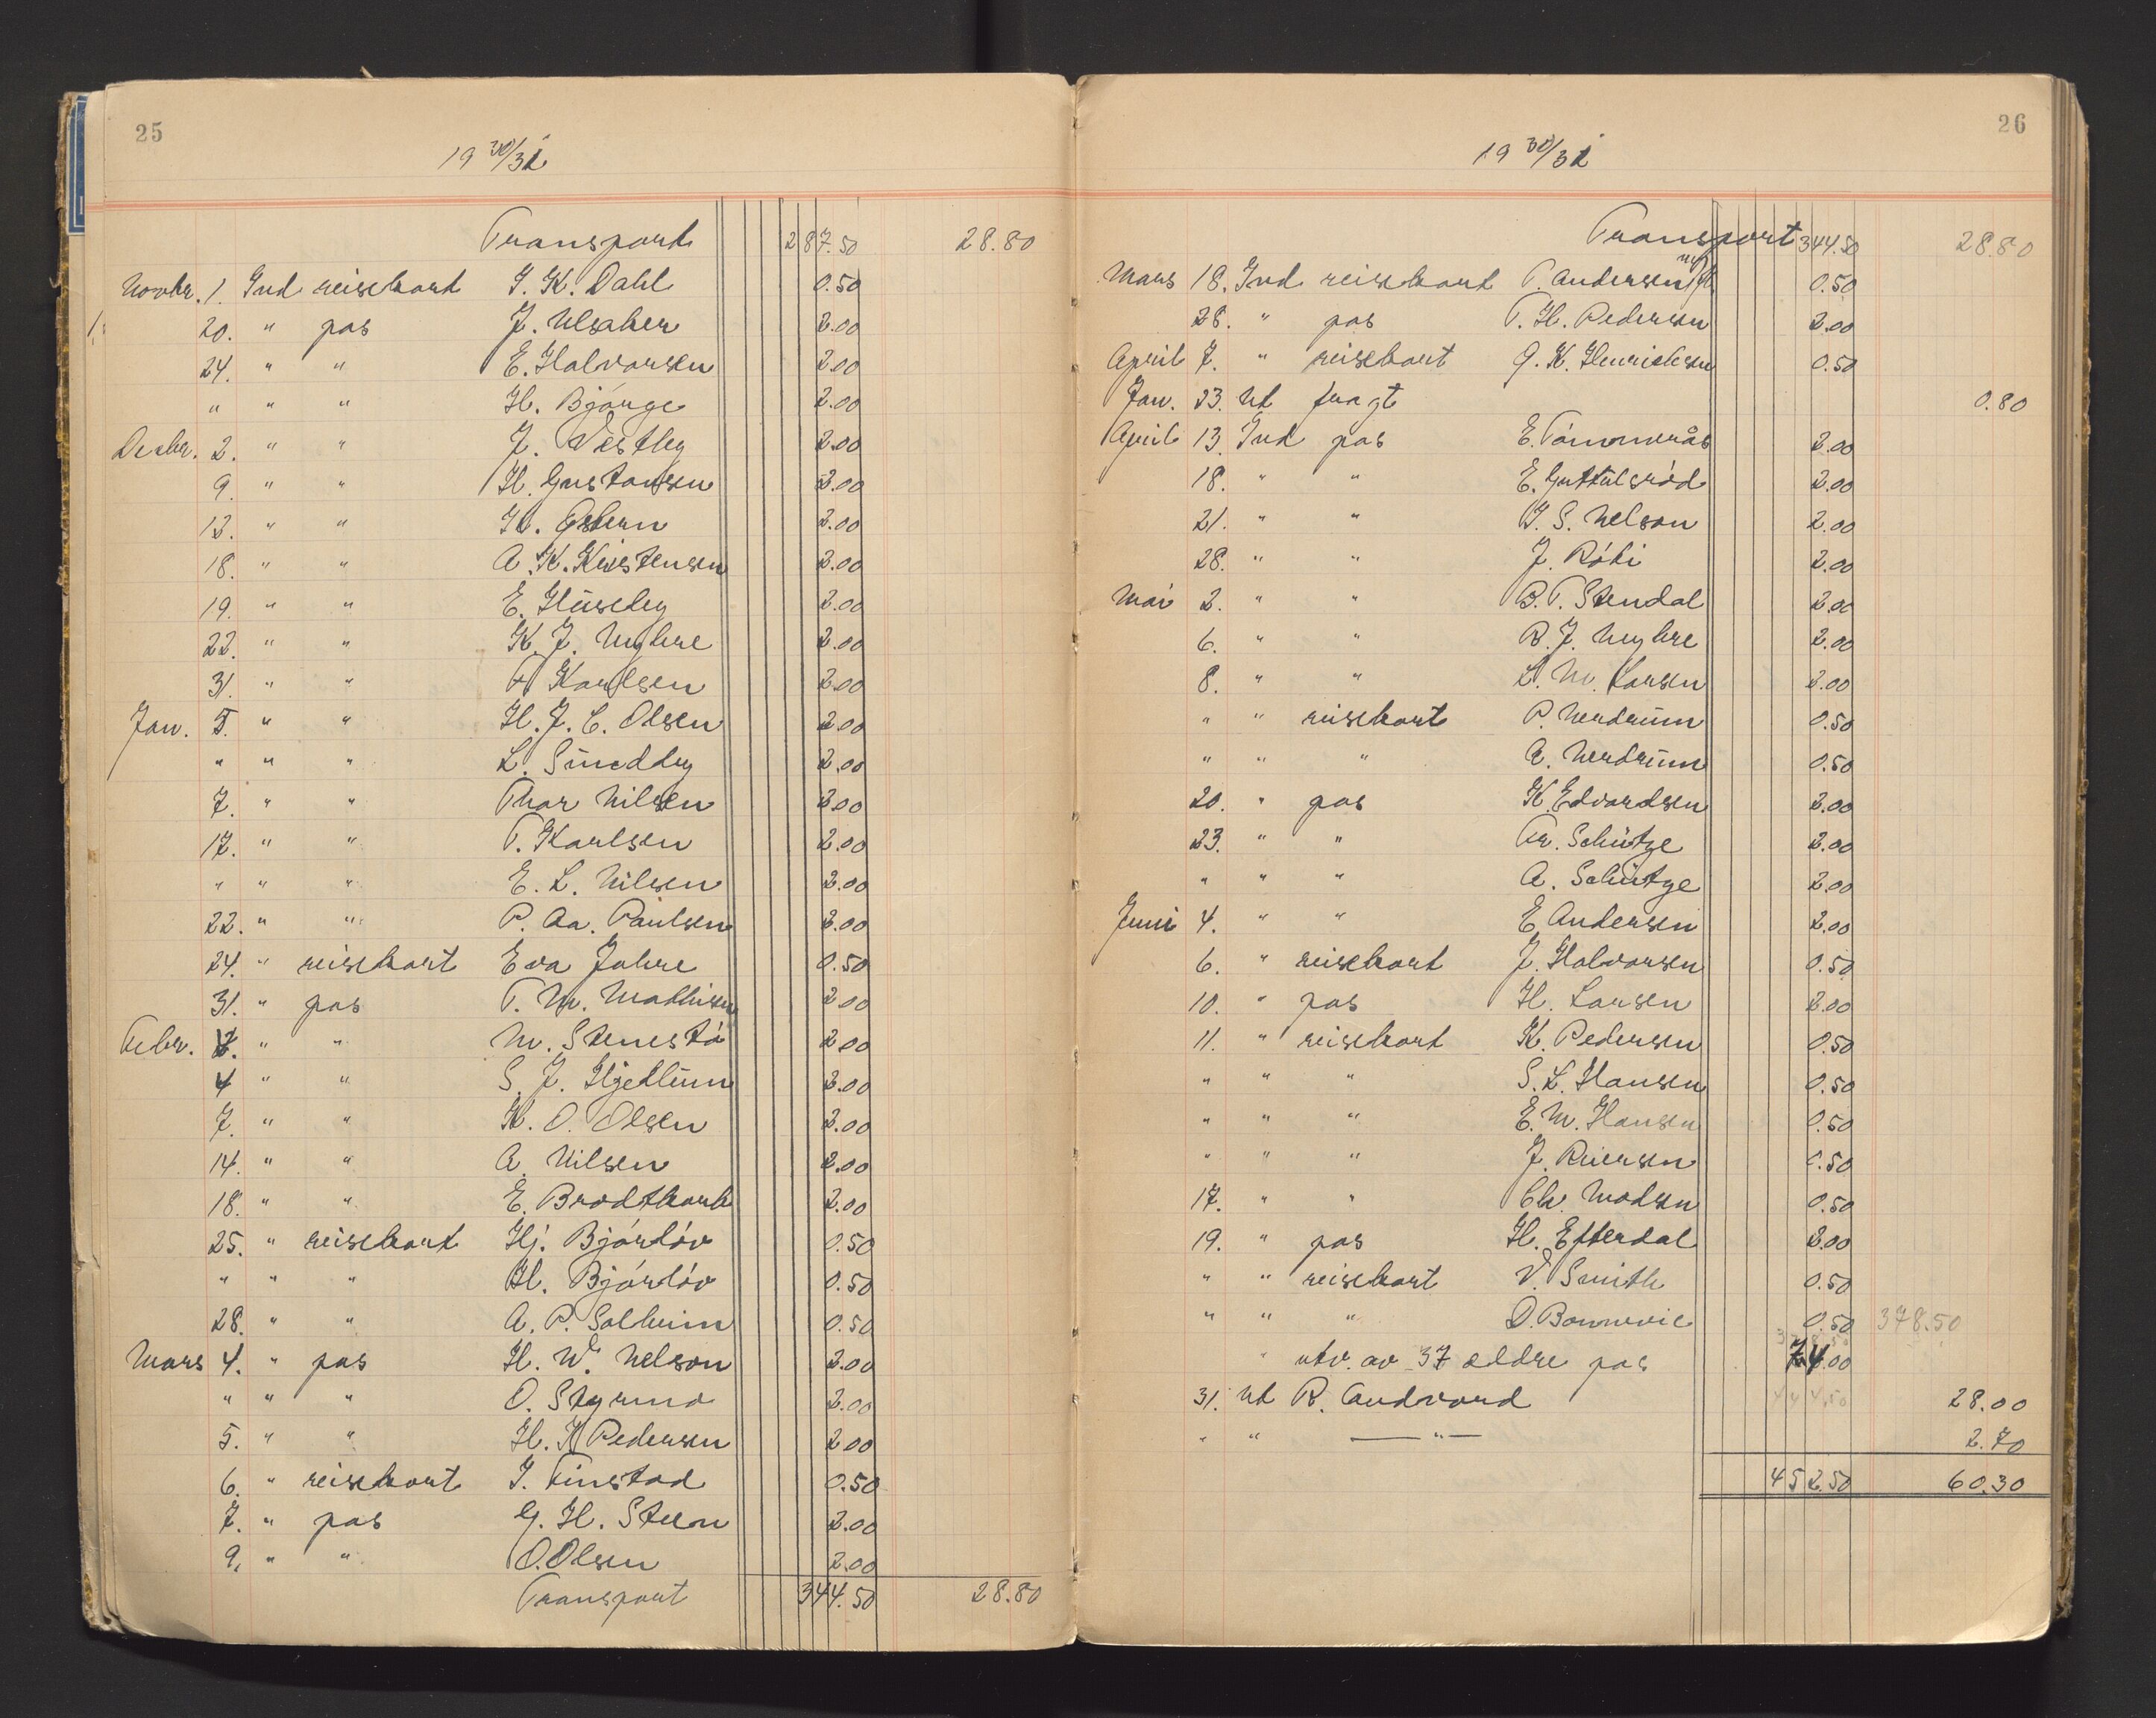 25
19 30/31
Transport 287.50 28.80
Novbr. 1. Ind reisekort J. K. Dahl 0.50
20. " pas J. Ulsaker 2.00
24. " " E. Halvorsen 2.00
" " " H. Bjønge 2.00
Desbr. 2. " " J. Vestby 2.00
9. " " H. Gustavsen 2.00
12. " " K. Østern 2.00
18. " " A. K. Kristensen 2.00
19. " " E. Huseby 2.00
22. " " K. J. Myhre 2.00
31. " " Karlsen 2.00
Jan. 5. " " H. J. C. Olsen 2.00
" " " L. Smedby 2.00
7. " " Thor Nilsen 2.00
17. " " T. Karlsen 2.00
" " " E. L. Nilsen 2.00
22. " " P. Aa. Paulsen 2.00
24. " reisekort Eva Jahre 0.50
31. " pas T. M. Mathisen 2.00
Febr. " " M. Stenestø 2.00
4 " " S. J. Hjellum 2.00
7. " " K. O. Olsen 2.00
14. " " A. Nilsen 2.00
18. " " E. Brodtkorb 2.00
25. " reisekort Hj. Bjørløv 0.50
" " " H. Bjørløv 0.50
28. " " A. P. Solheim 0.50
Mars 4. " pas H. W. Nelson 2.00
" " " O. Styrmo 2.00
5. " " H. K. Pedersen 2.00
6. " reisekort J. Finstad 0.50
7. " pas G. H. Steen 2.00
9. " " O. Olsen 2.00
Transport 344.50 28.80
26
19 30/31
Transport 344.50 28.80
Mars 18. Ind reisekort T. Andersen 0.50
28. " pas T. H. Pedersen 2.00
April 7. " reisekort G. K. Henriksen 0.50
Jan. 23. Ut fragt 0.80
April 13. Ind pas E. Tømmerås 2.00
18. " " E. Guttulsrød 2.00
21. " " J. S. Nelson 2.00
28. " " J. Röki 2.00
Mai 2. " " B. T. Stendal 2.00
6. " " R. J. Myhre 2.00
8. " " L. M. Larsen 2.00
" " reisekort P. Nerdrum 0.50
" " " A. Nerdrum 0.50
20. " pas K. Edvardsen 2.00
23. " " Fr. Schütze 2.00
" " " A. Schütze 2.00
Juni 4. " " E. Andersen 2.00
6. " reisekort J. Halvorsen 0.50
10. " pas H. Larsen 2.00
11. " reisekort K. Pedersen 0.50
" " " S. L. Hansen 0.50
" " " E. M. Hansen 0.50
" " " J. Reiersen 0.50
17. " " Chr. Madsen 0.50
19. " pas H. Efterdal 2.00
" " reisekort V. Smith 0.50
" " " D. Bonnevie 0.50 378.50
378.50
" utv. av 37 ældre pas 74.00
31. Ut R. Andvord 28.00
" " — " — 2.70
452.50 60.30